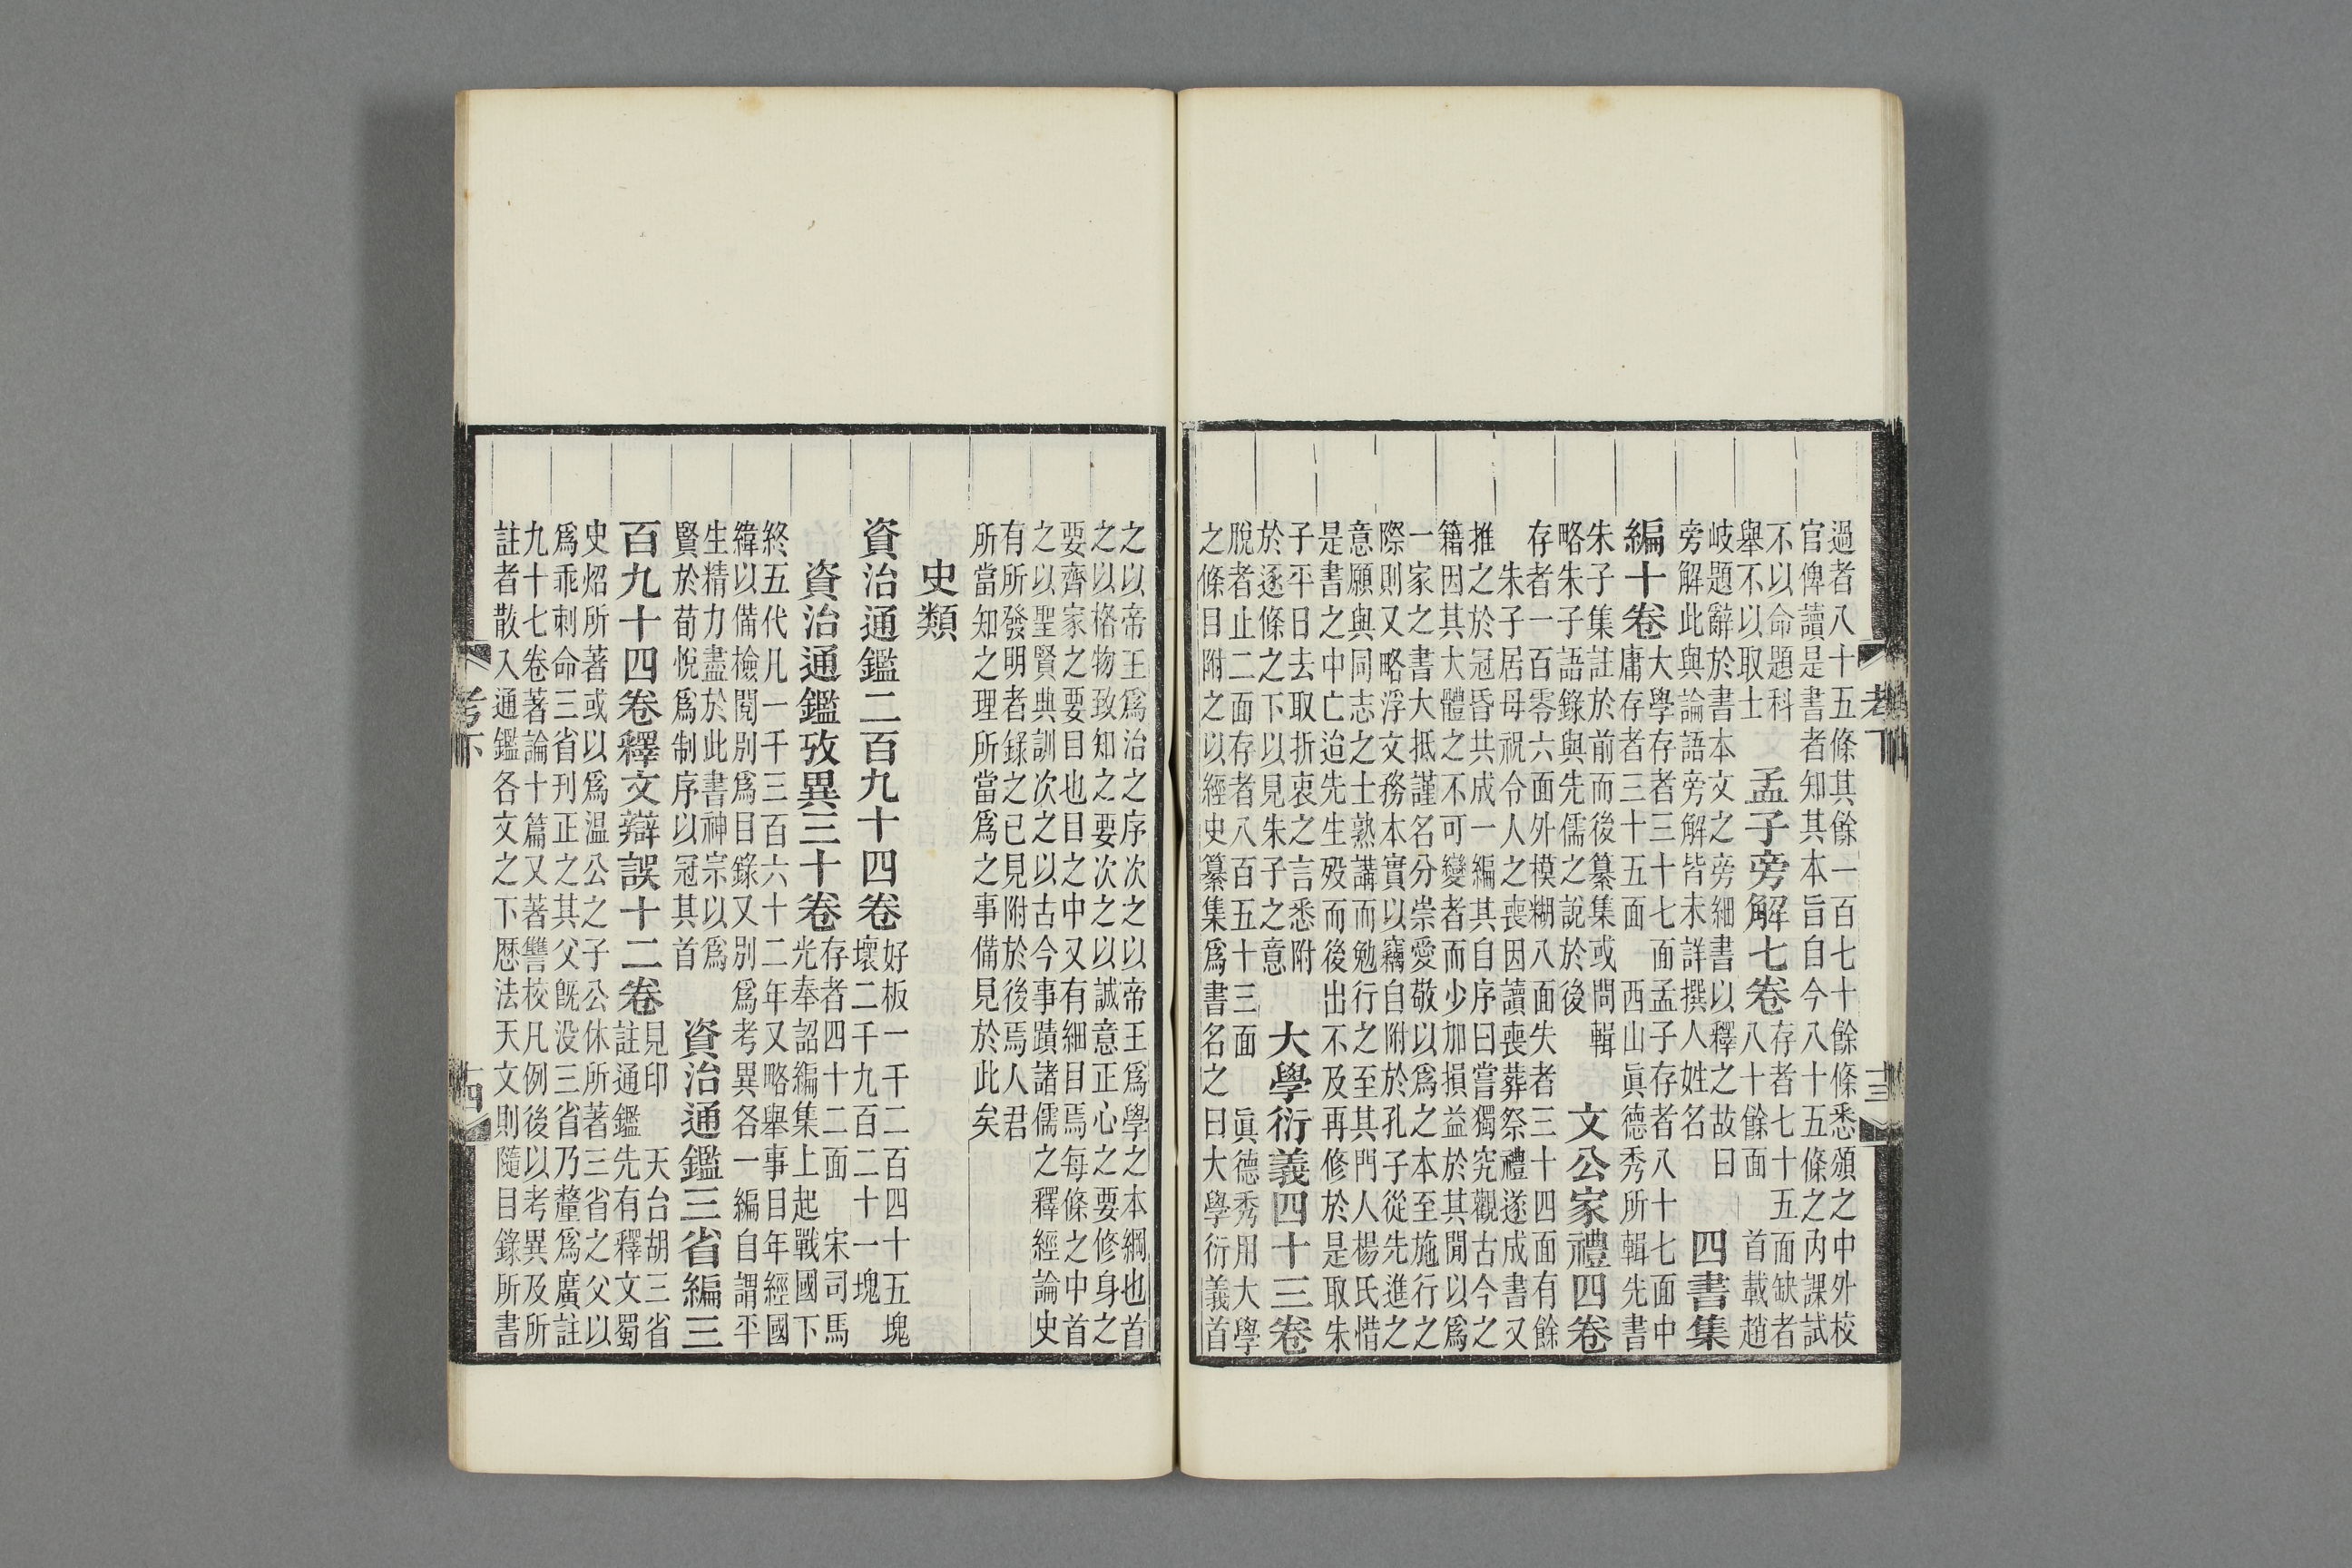 過者八十五條其餘一百七十餘條悉頒之中外校
官俾讀是書者知其本旨自今八十五條之内課試
不以命題科
舉不以取士
孟子旁解七卷
存者七十五面缺者
八十餘面　首載趙
岐題辭於書本文之旁細書以釋之故曰
旁解此與論語旁解皆未詳撰人姓名
四書集
編十卷
大學存者三十七面孟子存者八十七面中
庸存者三十五面　西山眞德秀所輯先書
朱子集註於前而後纂集或問輯
略朱子語錄與先儒之說於後
文公家禮四卷
存者一百零六面外模糊八面失者三十四面有餘
朱子居母祝令人之喪因讀喪葬祭禮遂成書又
推之於冠昏共成一編其自序曰嘗獨究觀古今之
籍因其大體之不可變者而少加損益於其間以爲
一家之書大抵謹名分崇愛敬以爲之本至施行之
際則又略浮文務本實以竊自附於孔子從先進之
意願與同志之士熟講而勉行之至其門人楊氏惜
是書之中亡迨先生歿而後出不及再修於是取朱
子平日去取折衷之言悉附
於逐條之下以見朱子之意
大學衍義四十三卷
脫者止二面存者八百五十三面　眞德秀用大學
之條目附之以經史纂集爲書名之曰大學衍義首
之以帝王爲治之序次之以帝王爲學之本綱也首
之以格物致知之要次之以誠意正心之要修身之
要齊家之要要目也目之中又有細目焉每條之中首
之以聖賢典訓次之以古今事蹟諸儒之釋經論史
有所發明者錄之已見附於後焉人君
所當知之理所當爲之事備見於此矣
史類
資治通鑑二百九十四卷
好板一千二百四十五塊
壞二千九百二十一塊
資治通鑑攷異三十卷
存者四十二面　宋司馬
光奉詔編集上起戰國下
終五代凡一千三百六十二年又略舉事目年經國
緯以備檢閱別爲目錄又別爲考異各一編自謂平
生精力盡於此書神宗以爲
賢於荀悅爲制序以冠其首
資治通鑑三省編三
百九十四卷釋文辯誤十二卷
見印　天台胡三省
註通鑑先有釋文蜀
史炤所著或以爲温公之子公休所著三省之父以
爲乖刺命三省刊正之其父旣没三省乃釐爲廣註
九十七卷著論十篇又著讐校凡例後以考異及所
註者散入通鑑各文之下厯法天文則隨目錄所書
考下
十三
考下
十四